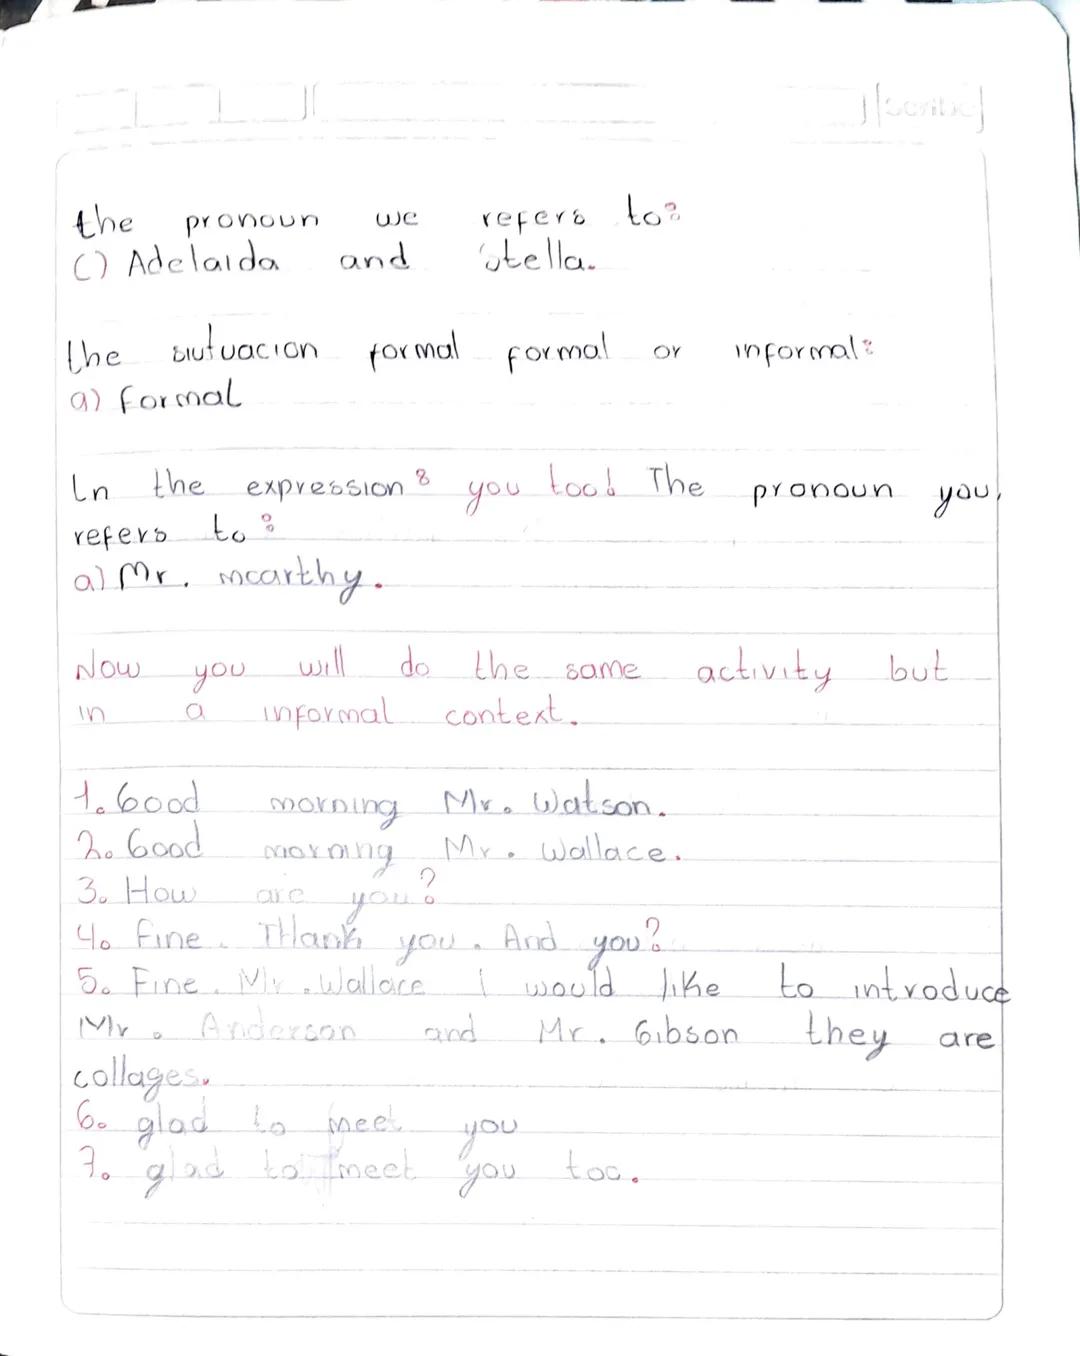 [scribe]
the pronoun we refers to:
c) Adelaida and Stella.
the siutuacion formal formal or informal:
a) formal
In the expression: you too! The pronoun you,
refers to:
a) Mr. mcarthy.
Now you will do the same activity but
in a informal context.
1. Good morning Mr. Watson.
2. Good morning Mr. Wallace.
3. How are you?
4. Fine. THank you. And you?
5. Fine. Mr. Wallace I would like to introduce
Mr. Anderson and Mr. Gibson they are
collages.
6. glad to meet you
7. glad to meet you too.